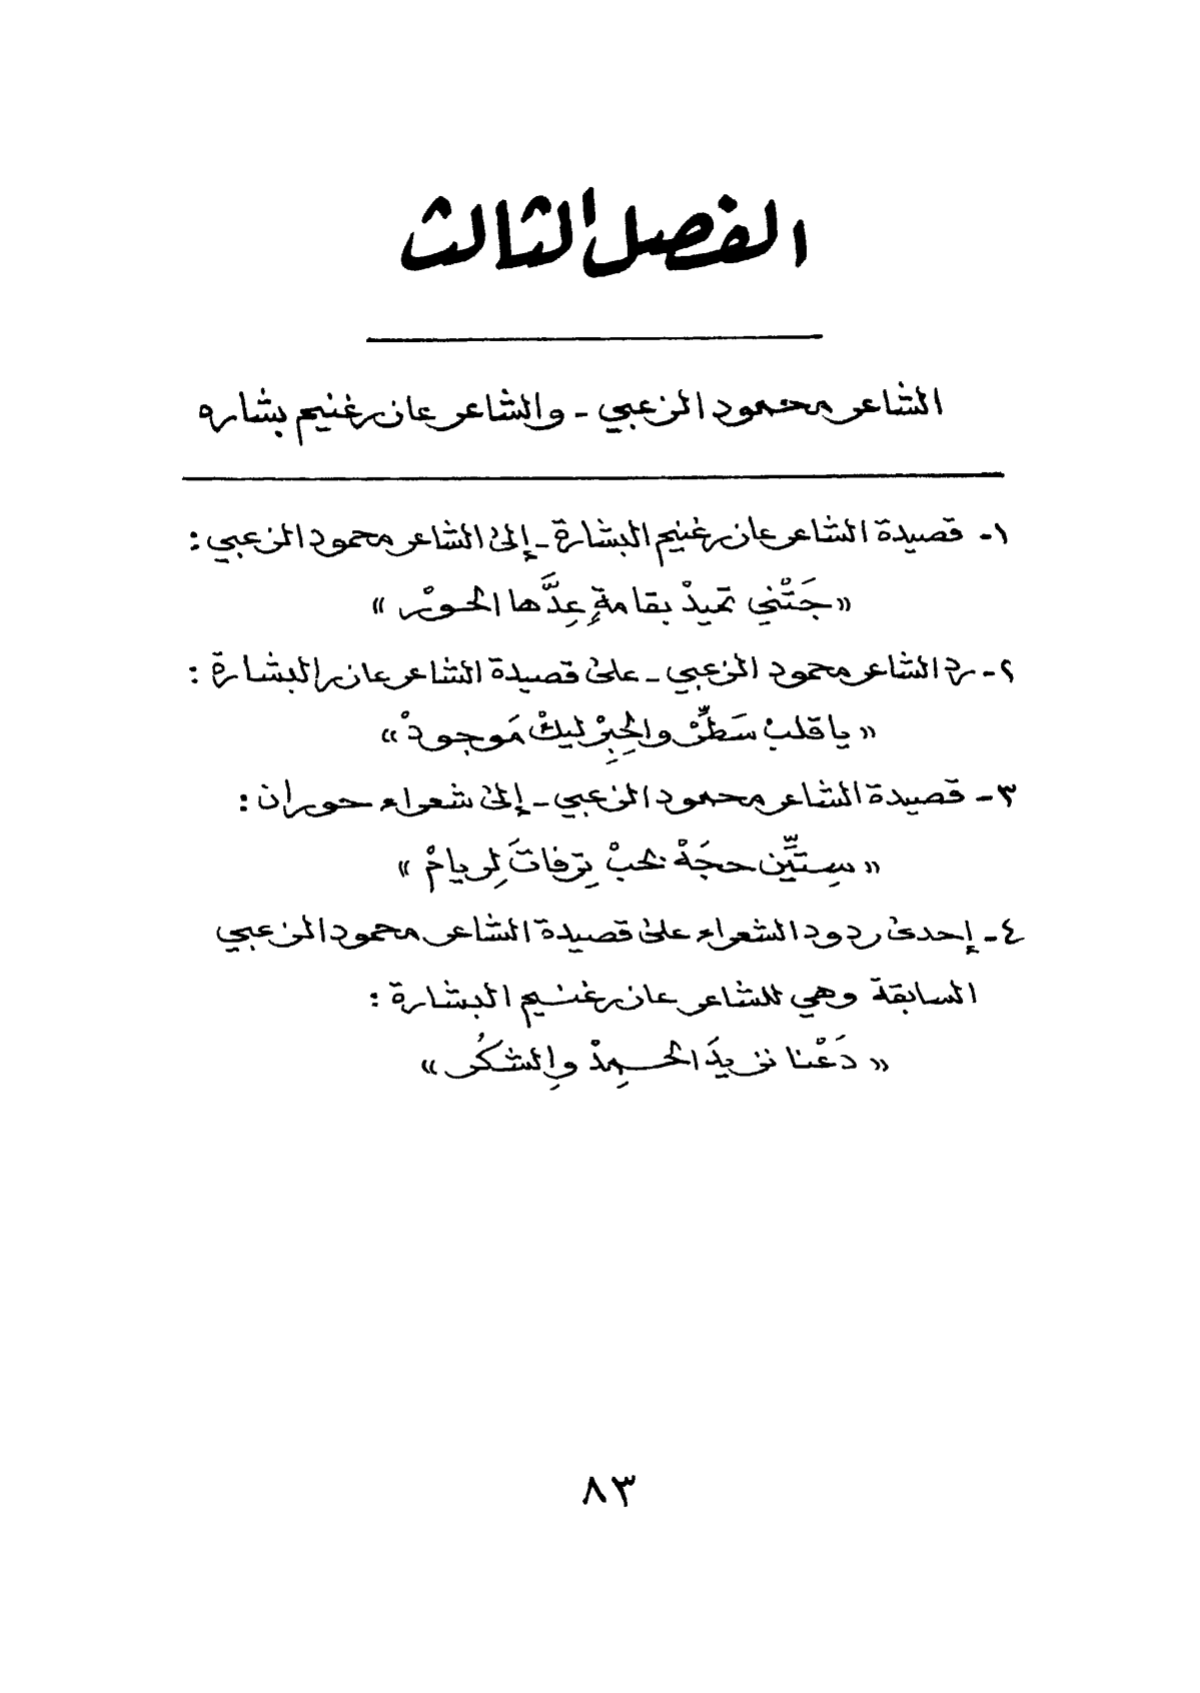 الفصل الثالث
الشاعر محمود الزعبي - والشاعر عازر غنيم بشاره
١- قصيدة الشاعر عازر غنيم البشارة - إلى الشاعر محمود الزعبي :
« جَتْني تميدْ بقامةٍ عِدَّها الحورْ »
٢- رد الشاعر محمود الزعبي - على قصيدة الشاعر عازر البشارة :
« يا قلبْ سَطِّرْ والحِبِرْ ليكْ مَوجودْ »
٣- قصيدة الشاعر محمود الزعبي - إلى شعراء حوران :
« سِتِّين حجَهْ بحبْ تِرفاتَ لِريامْ »
٤- إحدى ردود الشعراء على قصيدة الشاعر محمود الزعبي
السابقة وهي للشاعر عازر غنيم البشارة :
« دَعْنا نزيدَ الحمِدْ والِشكُر »
٨٣